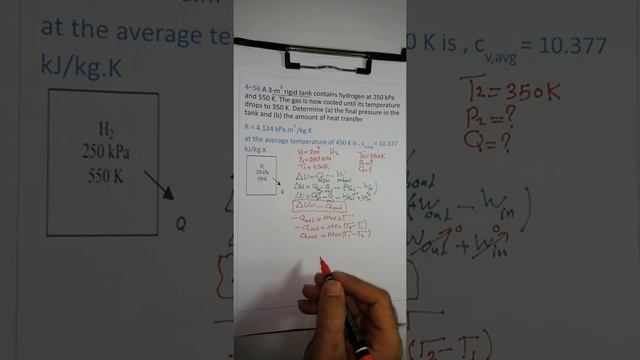 at the average temperature
0 K is , c v,avg = 10.377
kJ/kg.K
H2
250 kPa
550 K
Q
4–56 A 3-m³ rigid tank contains hydrogen at 250 kPa
and 550 K. The gas is now cooled until its temperature
drops to 350 K. Determine (a) the final pressure in the
tank and (b) the amount of heat transfer
R = 4.124 kPa.m³/kg.K
at the average temperature of 450 K is , c v,avg = 10.377
kJ/kg.K
H2
250 kPa
550 K
Q
V1=3m³ H2
P1=250 kPa
T1=550K
T2=350K
P2=?
Q=?
ΔU=Q - W
ΔU=-Qout
-Qout=mcvΔT
-Qout=mcv(T2-T1)
Qout=mcv(T1-T2)
T2=350K
P2=?
Q=?
out - Win
Wout + Win
(T2-T1)